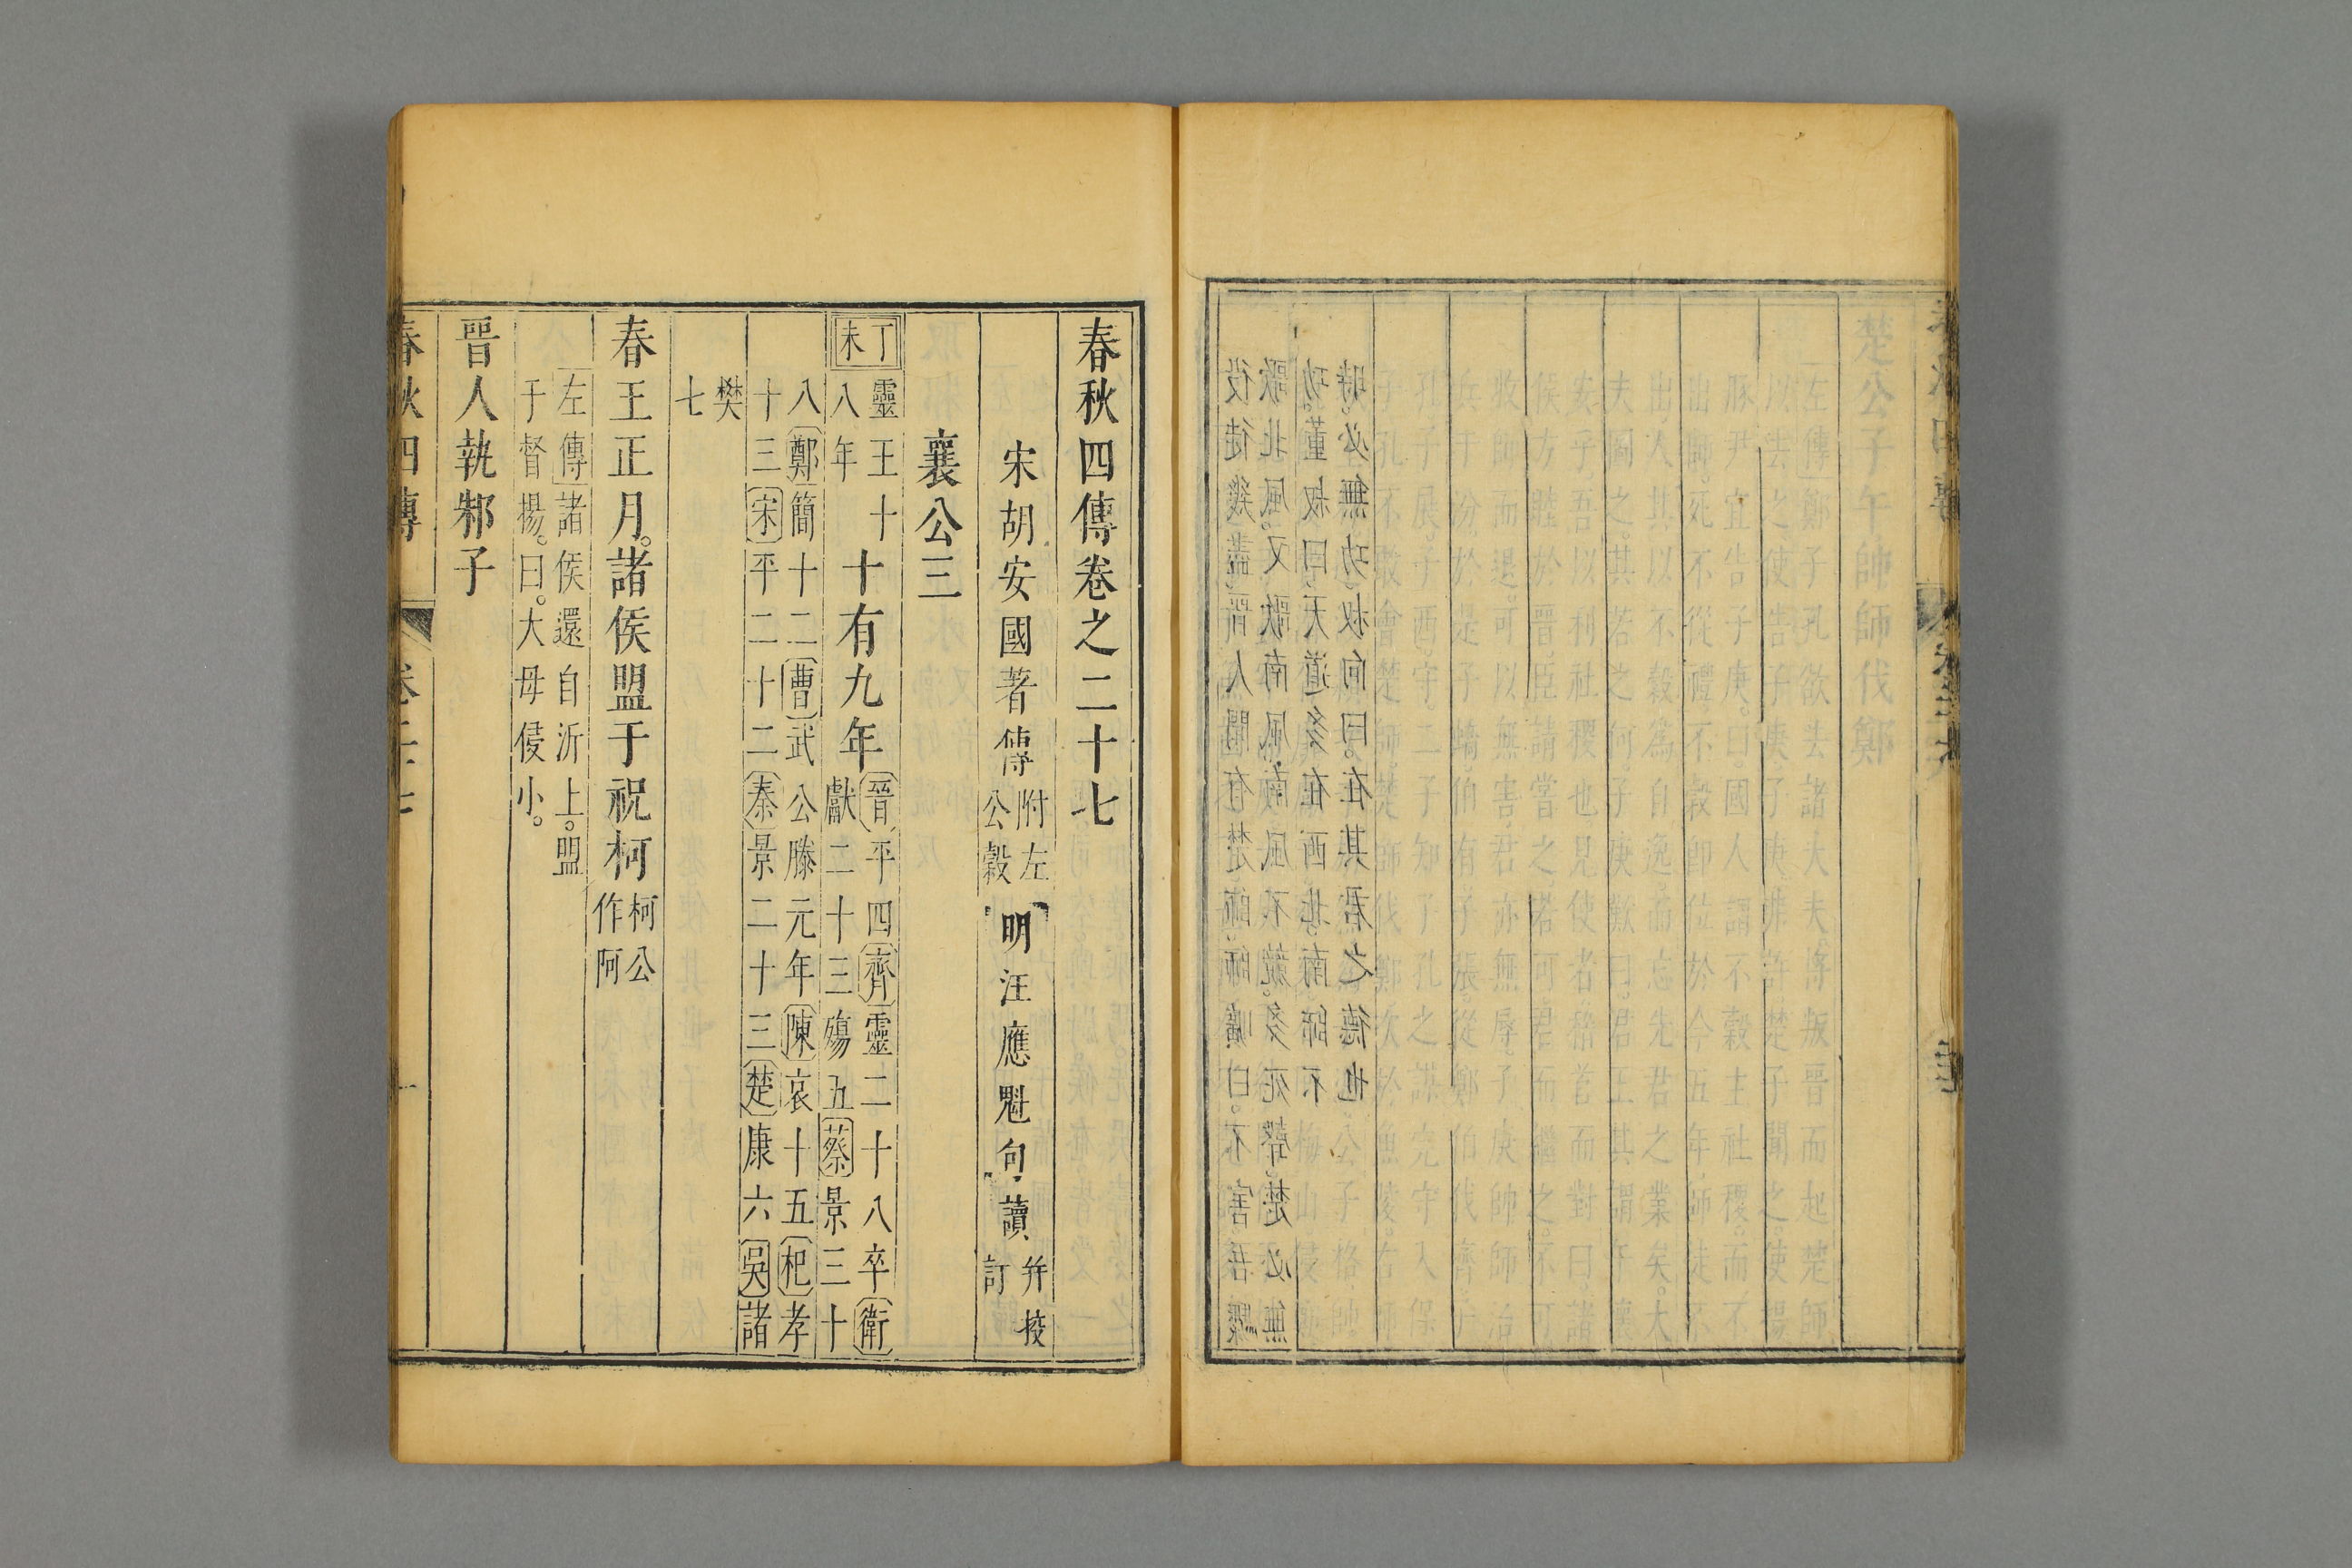 楚公子午帥師伐鄭
左傳鄭子孔欲去諸大夫。將叛晉而起楚師
以去之。使告子庚。子庚弗許。楚子聞之。使楊
豚尹宜告子庚。曰。國人謂不穀主社稷。而不
出師。死不從禮。不穀即位。於今五年。師徒不
出。人其以不穀爲自逸。而忘先君之業矣。大
夫圖之。其若之何。子庚歎曰。君王其謂午懷
安乎。吾以利社稷也。見使者。稽首而對曰。諸
侯方睦於晉。臣請嘗之。若可。君而繼之。不可。
收師而退。可以無害。君亦無辱。子庚帥師治
兵于汾。於是子蟜伯有子張。從鄭伯伐齊。子
孔子展。子西。守。二子知子孔之謀。完守入保
子孔不敢會楚師。楚師伐鄭。次於魚陵。右師
役徒幾盡。晉人聞有楚師。師曠曰。不害。吾驟
歌北風。又歌南風。南風不競。多死聲。楚必無
功。董叔曰。天道多在西北。南師不
時。必無功。叔向曰。在其君之德也
春秋四傳卷之二十七
宋胡安國著傳 附左公穀 明汪應魁句讀 并挍訂
襄公三
丁未 靈王十八年 十有九年 晉平四齊靈二十八卒衛
獻二十三殤五蔡景三十
八鄭簡十二曹武公滕元年陳哀十五杞孝
十三宋平二十二秦景二十三楚康六吳諸
樊七
春王正月。諸侯盟于祝柯 柯公作阿
左傳諸侯還自沂上。盟
于督揚。曰。大毋侵小。
晉人執邾子
春秋四傳 卷二十七 一